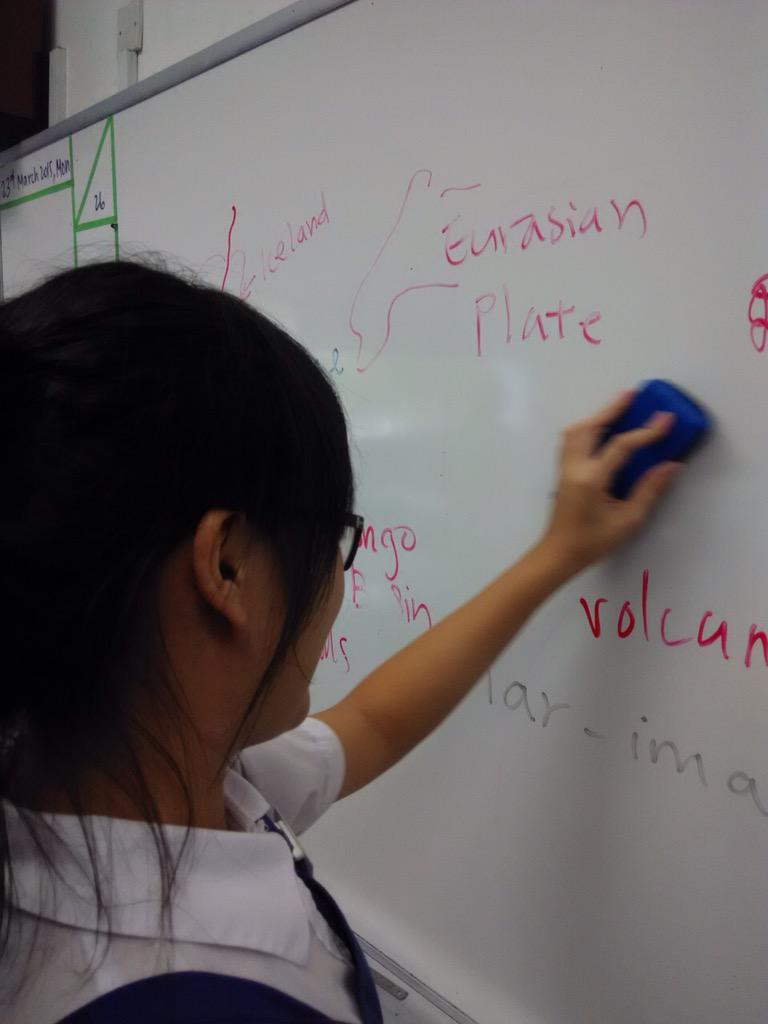 23rd March 2015, Mon
26
Iceland
Eurasian
Plate
ngo
in
volcan
lar-ima